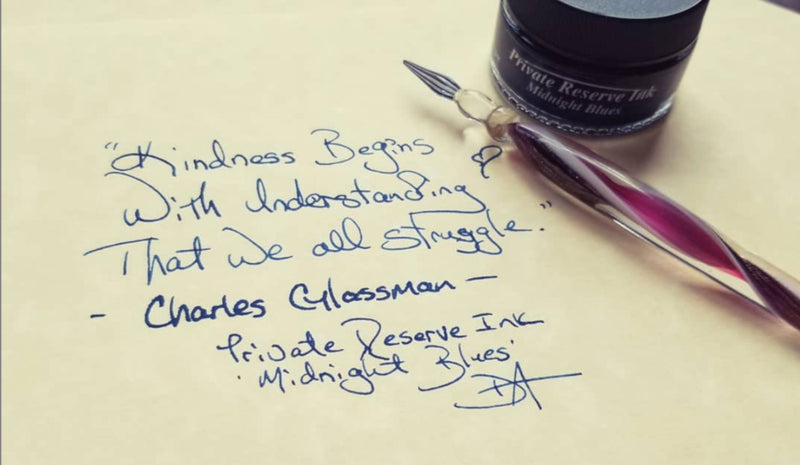 Private Reserve Ink
Midnight Blues
"Kindness Begins
With Understanding
That We all struggle."
- Charles Glassman -
Private Reserve Ink
'Midnight Blues'
DA